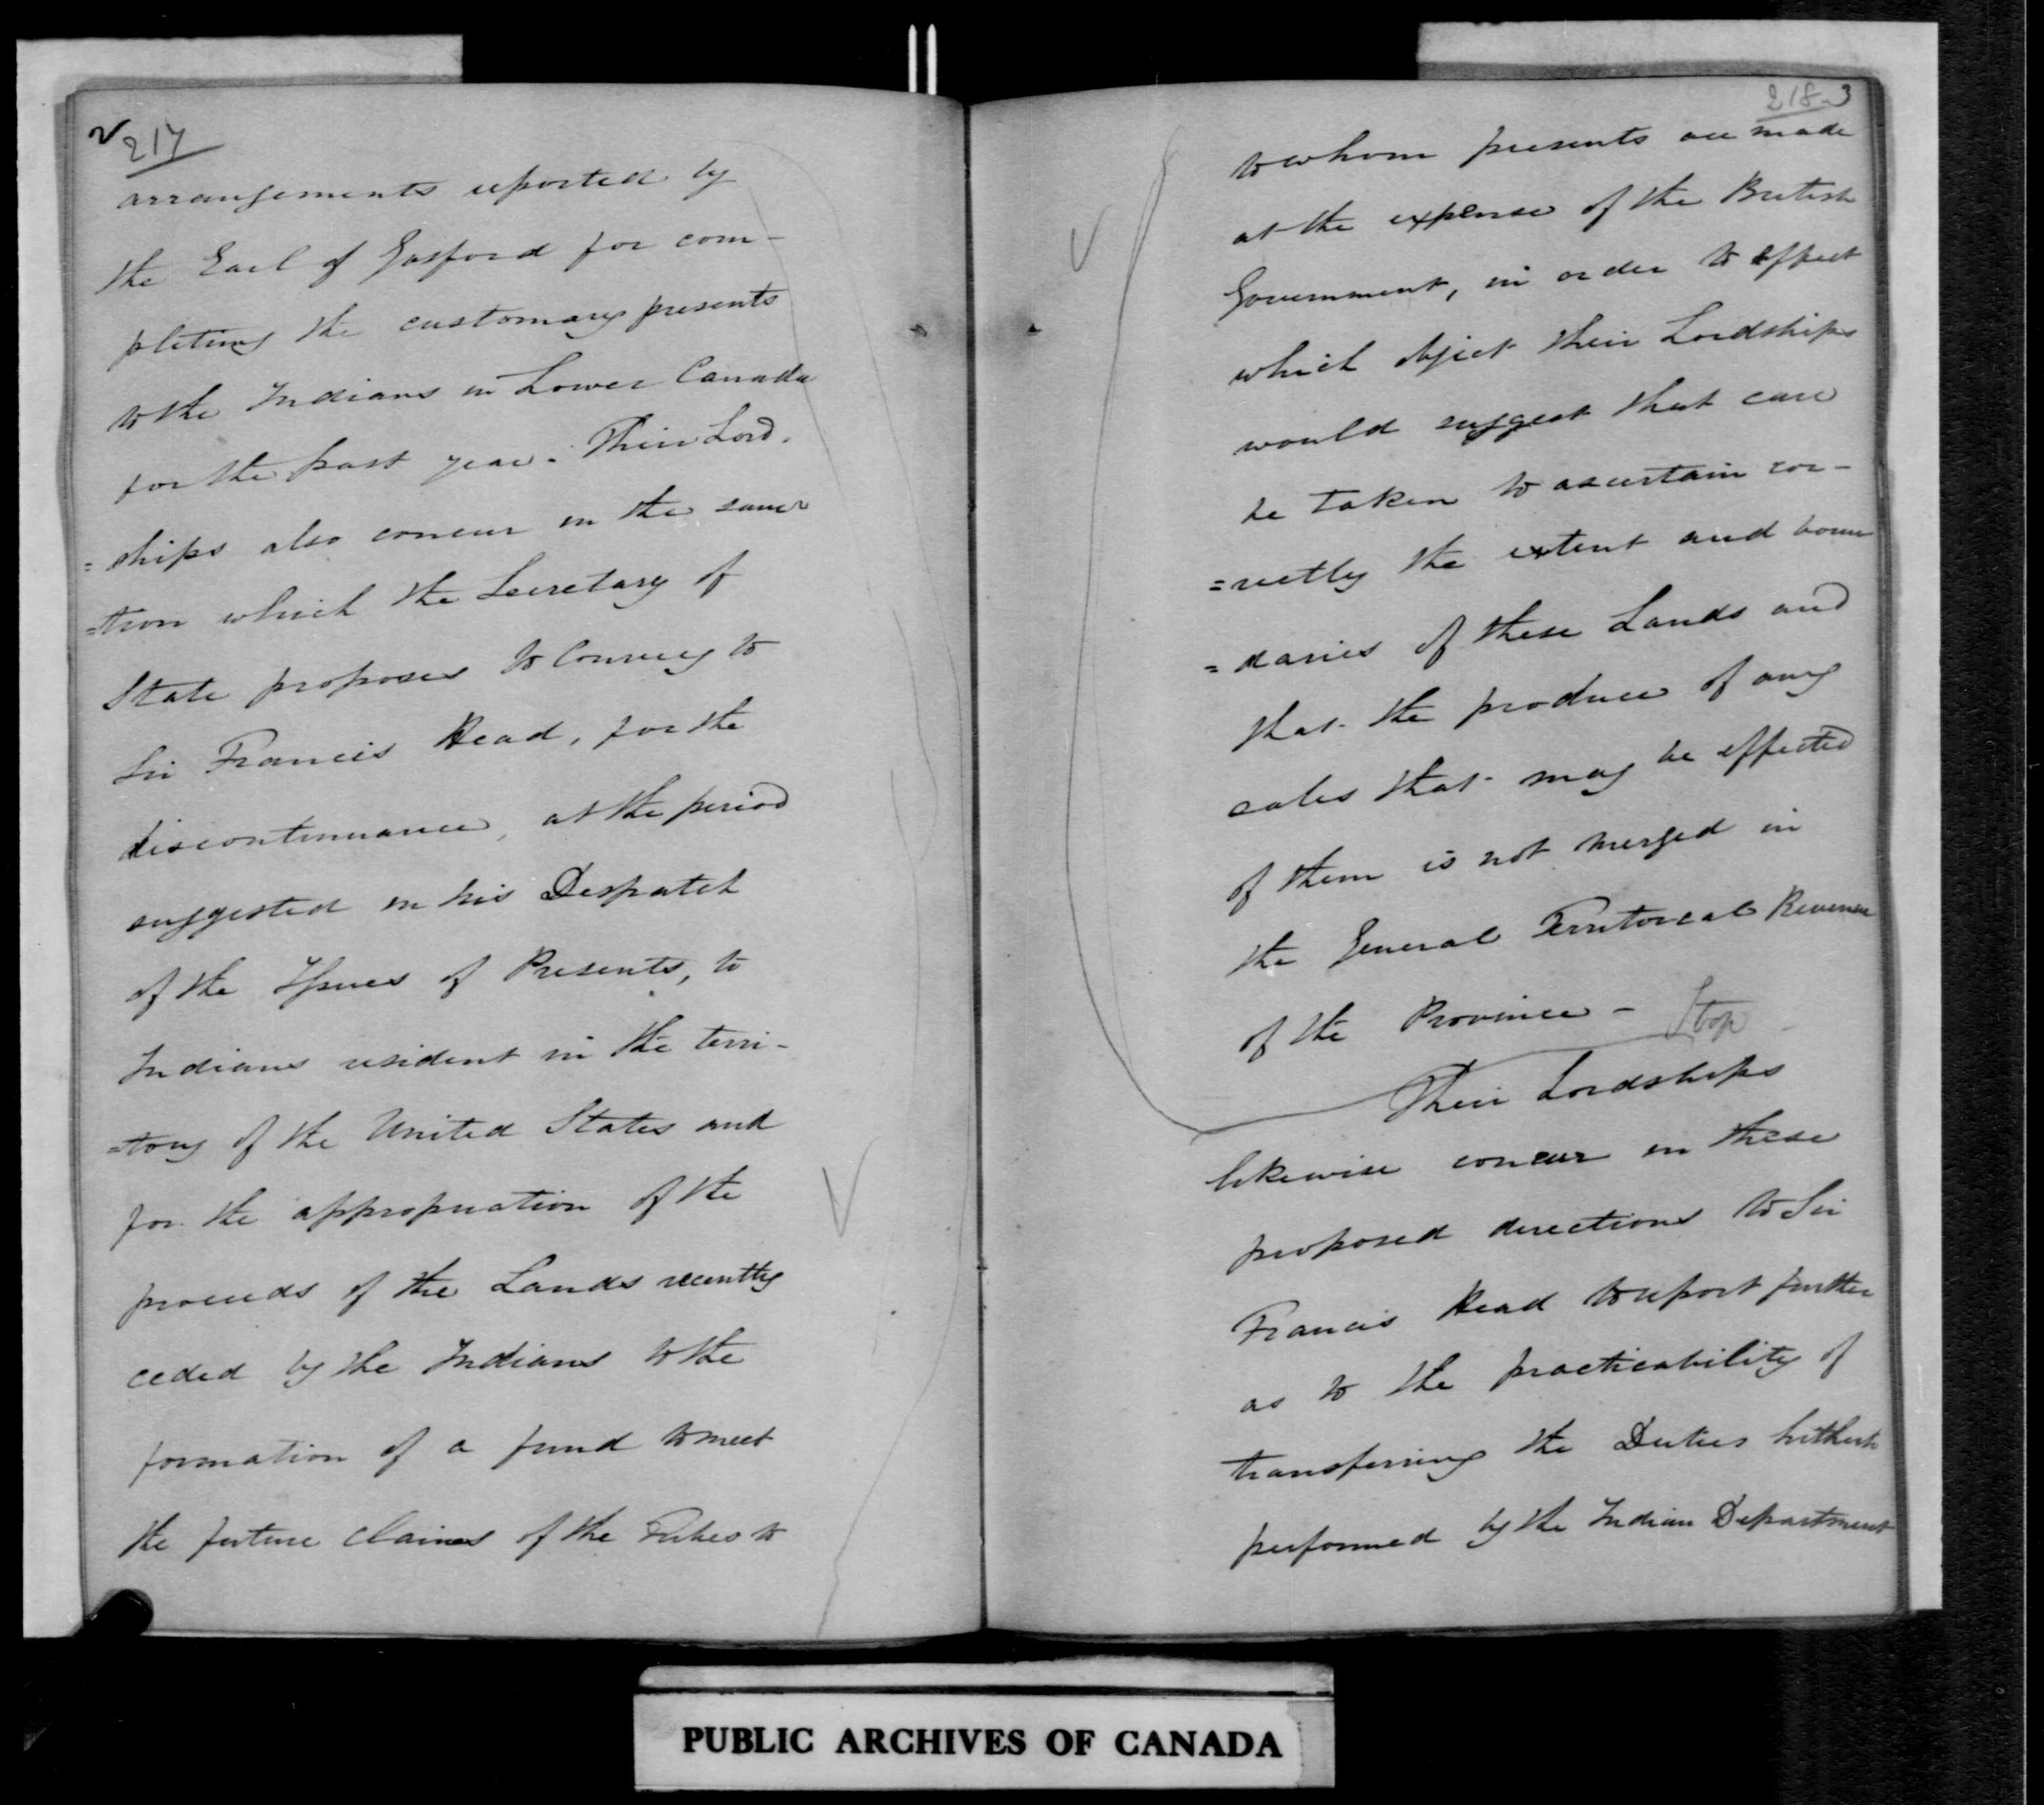 2
217
arrangements reported by
the Earl of Gosford for com-
pleting the customary presents
to the Indians in Lower Canada
for the past year. Their Lord,
=ships also concur in the sanc
=tion which the Secretary of
State proposes to Convey to
Sir Francis Head, for the
discontinuance, at the period
suggested in his Despatch
of the Issues of Presents, to
Indians resident in the terri-
=tory of the United States and
for the appropriation of the
proceeds of the Lands recently
ceded by the Indians to the
formation of a fund to meet
the future claims of the Tribes to
218 3
to whom presents are made
at the expense of the British
Government, in order to effect
which object their Lordships
would suggest that care
be taken to ascertain cor-
=rectly the extent and boun
=daries of these Lands and
that the produce of any
sales that may be effected
of them is not merged in
the General Territorial Revenue
of the Province - Stop
Their Lordships
likewise concur in these
proposed directions to Sir
Francis Head to report further
as to the practicability of
transferring the Duties hitherto
performed by the Indian Department
PUBLIC ARCHIVES OF CANADA